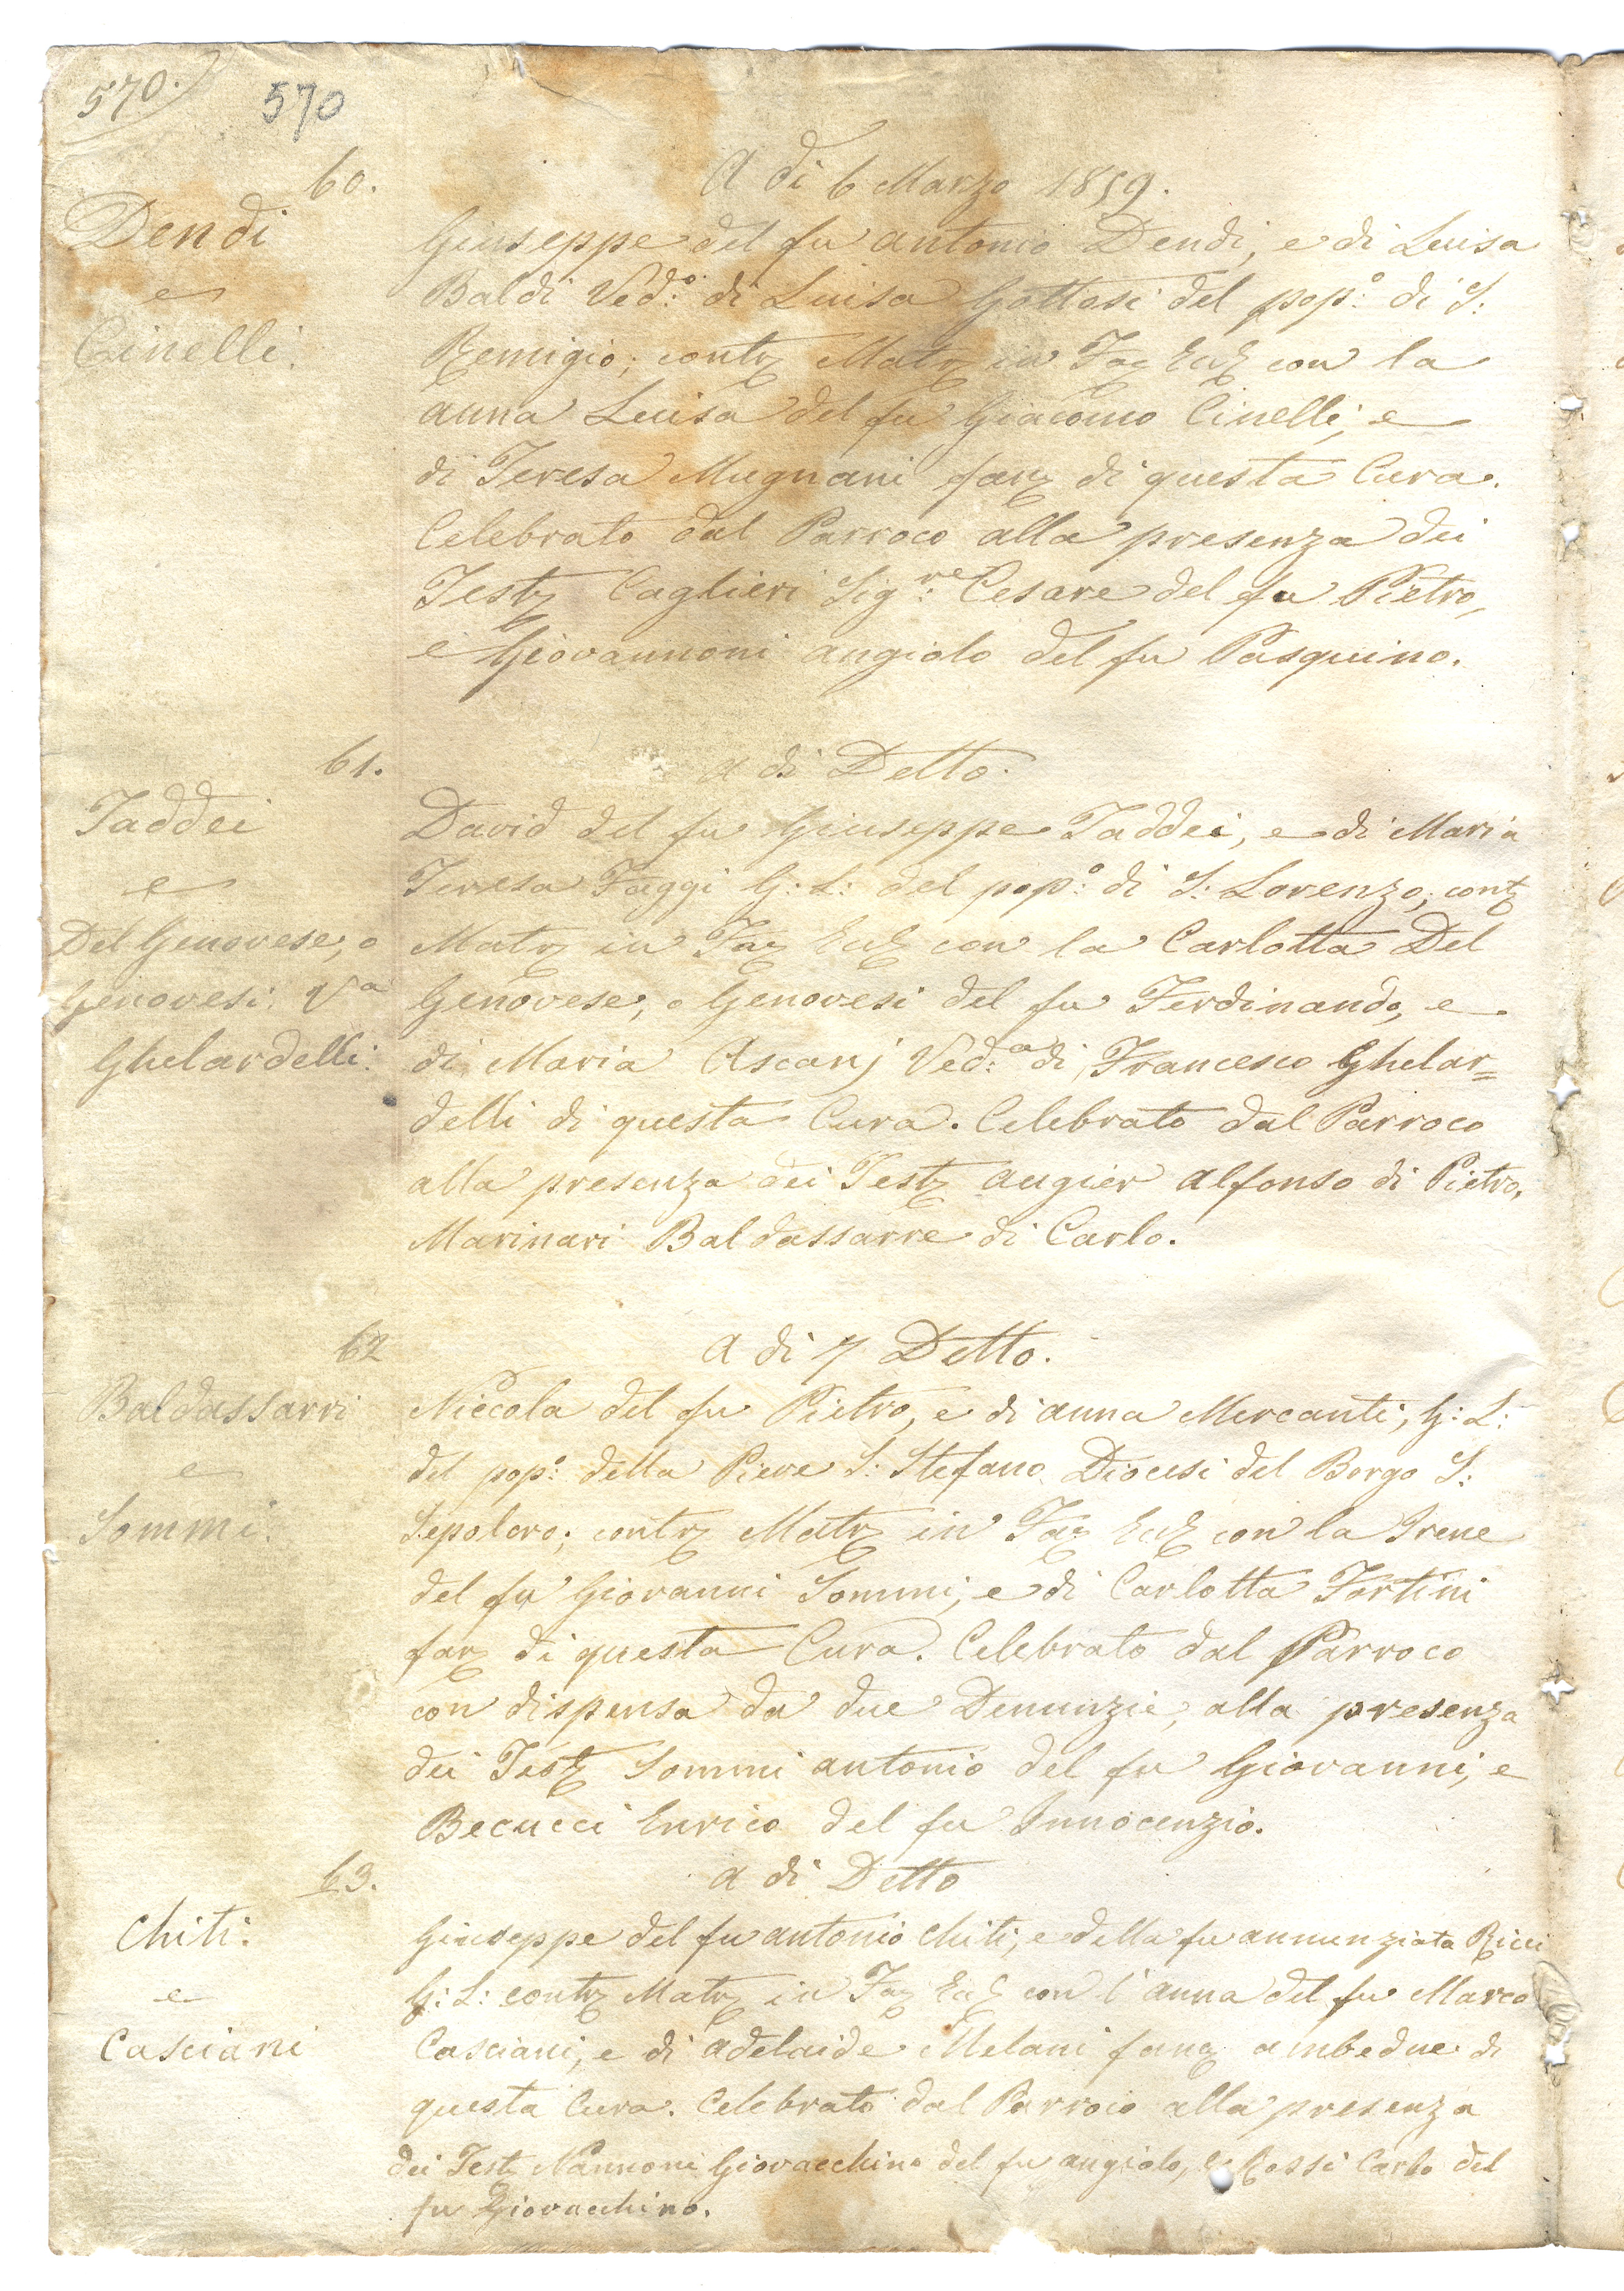 570.
570
60.
A dì 6 Marzo 1859.
Dendi
e
Cinelli.
Giuseppe del fu Antonio Dendi, e di Luisa
Baldi Ved:o di Luisa Gottasi del pop:o di S:
Remigio; contr Matr in Fac Eccl con la
Anna Luisa del fu Giacomo Cinelli, e
di Teresa Mugnani fanc di questa Cura.
Celebrato dal Parroco alla presenza dei
Test Caglieri Sig:re Cesare del fu Pietro,
e Giovannoni Angiolo del fu Pasquino.
61.
A dì Detto.
Taddei
e
Del Genovese, o
Genovesi. Va
Ghelardelli.
David del fu Giuseppe Taddei, e di Maria
Teresa Faggi G: L: del pop:o di S: Lorenzo; cont
Matr in Fac Eccl con la Carlotta Del
Genovese, o Genovesi del fu Ferdinando, e
di Maria Ascanj Ved:a di Francesco Ghelar=
delli di questa Cura. Celebrato dal Parroco
alla presenza dei Test Augier Alfonso di Pietro,
Marinari Baldassarre di Carlo.
62
A dì 7 Detto.
Baldassarri
e
Sommi.
Niccola del fu Pietro, e di Anna Mercanti, G: L:
del pop:o della Pieve S: Stefano Diocesi del Borgo S:
Sepolcro; contr Matr in Fac Eccl con la Irene
del fu Giovanni Sommi, e di Carlotta Fortini
fanc di questa Cura. Celebrato dal Parroco
con dispensa da due Denunzie, alla presenza
dei Test Sommi Antonio del fu Giovanni, e
Becucci Enrico del fu Innocenzio.
63.
A dì Detto
Chiti.
e
Casciani
Giuseppe del fu Antonio Chiti, e della fu Annunziata Ricci
G: L: contr Matr in Fac Eccl con l'Anna del fu Marco
Casciani, e di Adelaide Melani fanc ambedue di
questa Cura. Celebrato dal Parroco alla presenza
dei Test Nannoni Giovacchino del fu Angiolo, e Rossi Carlo del
fu Giovacchino.